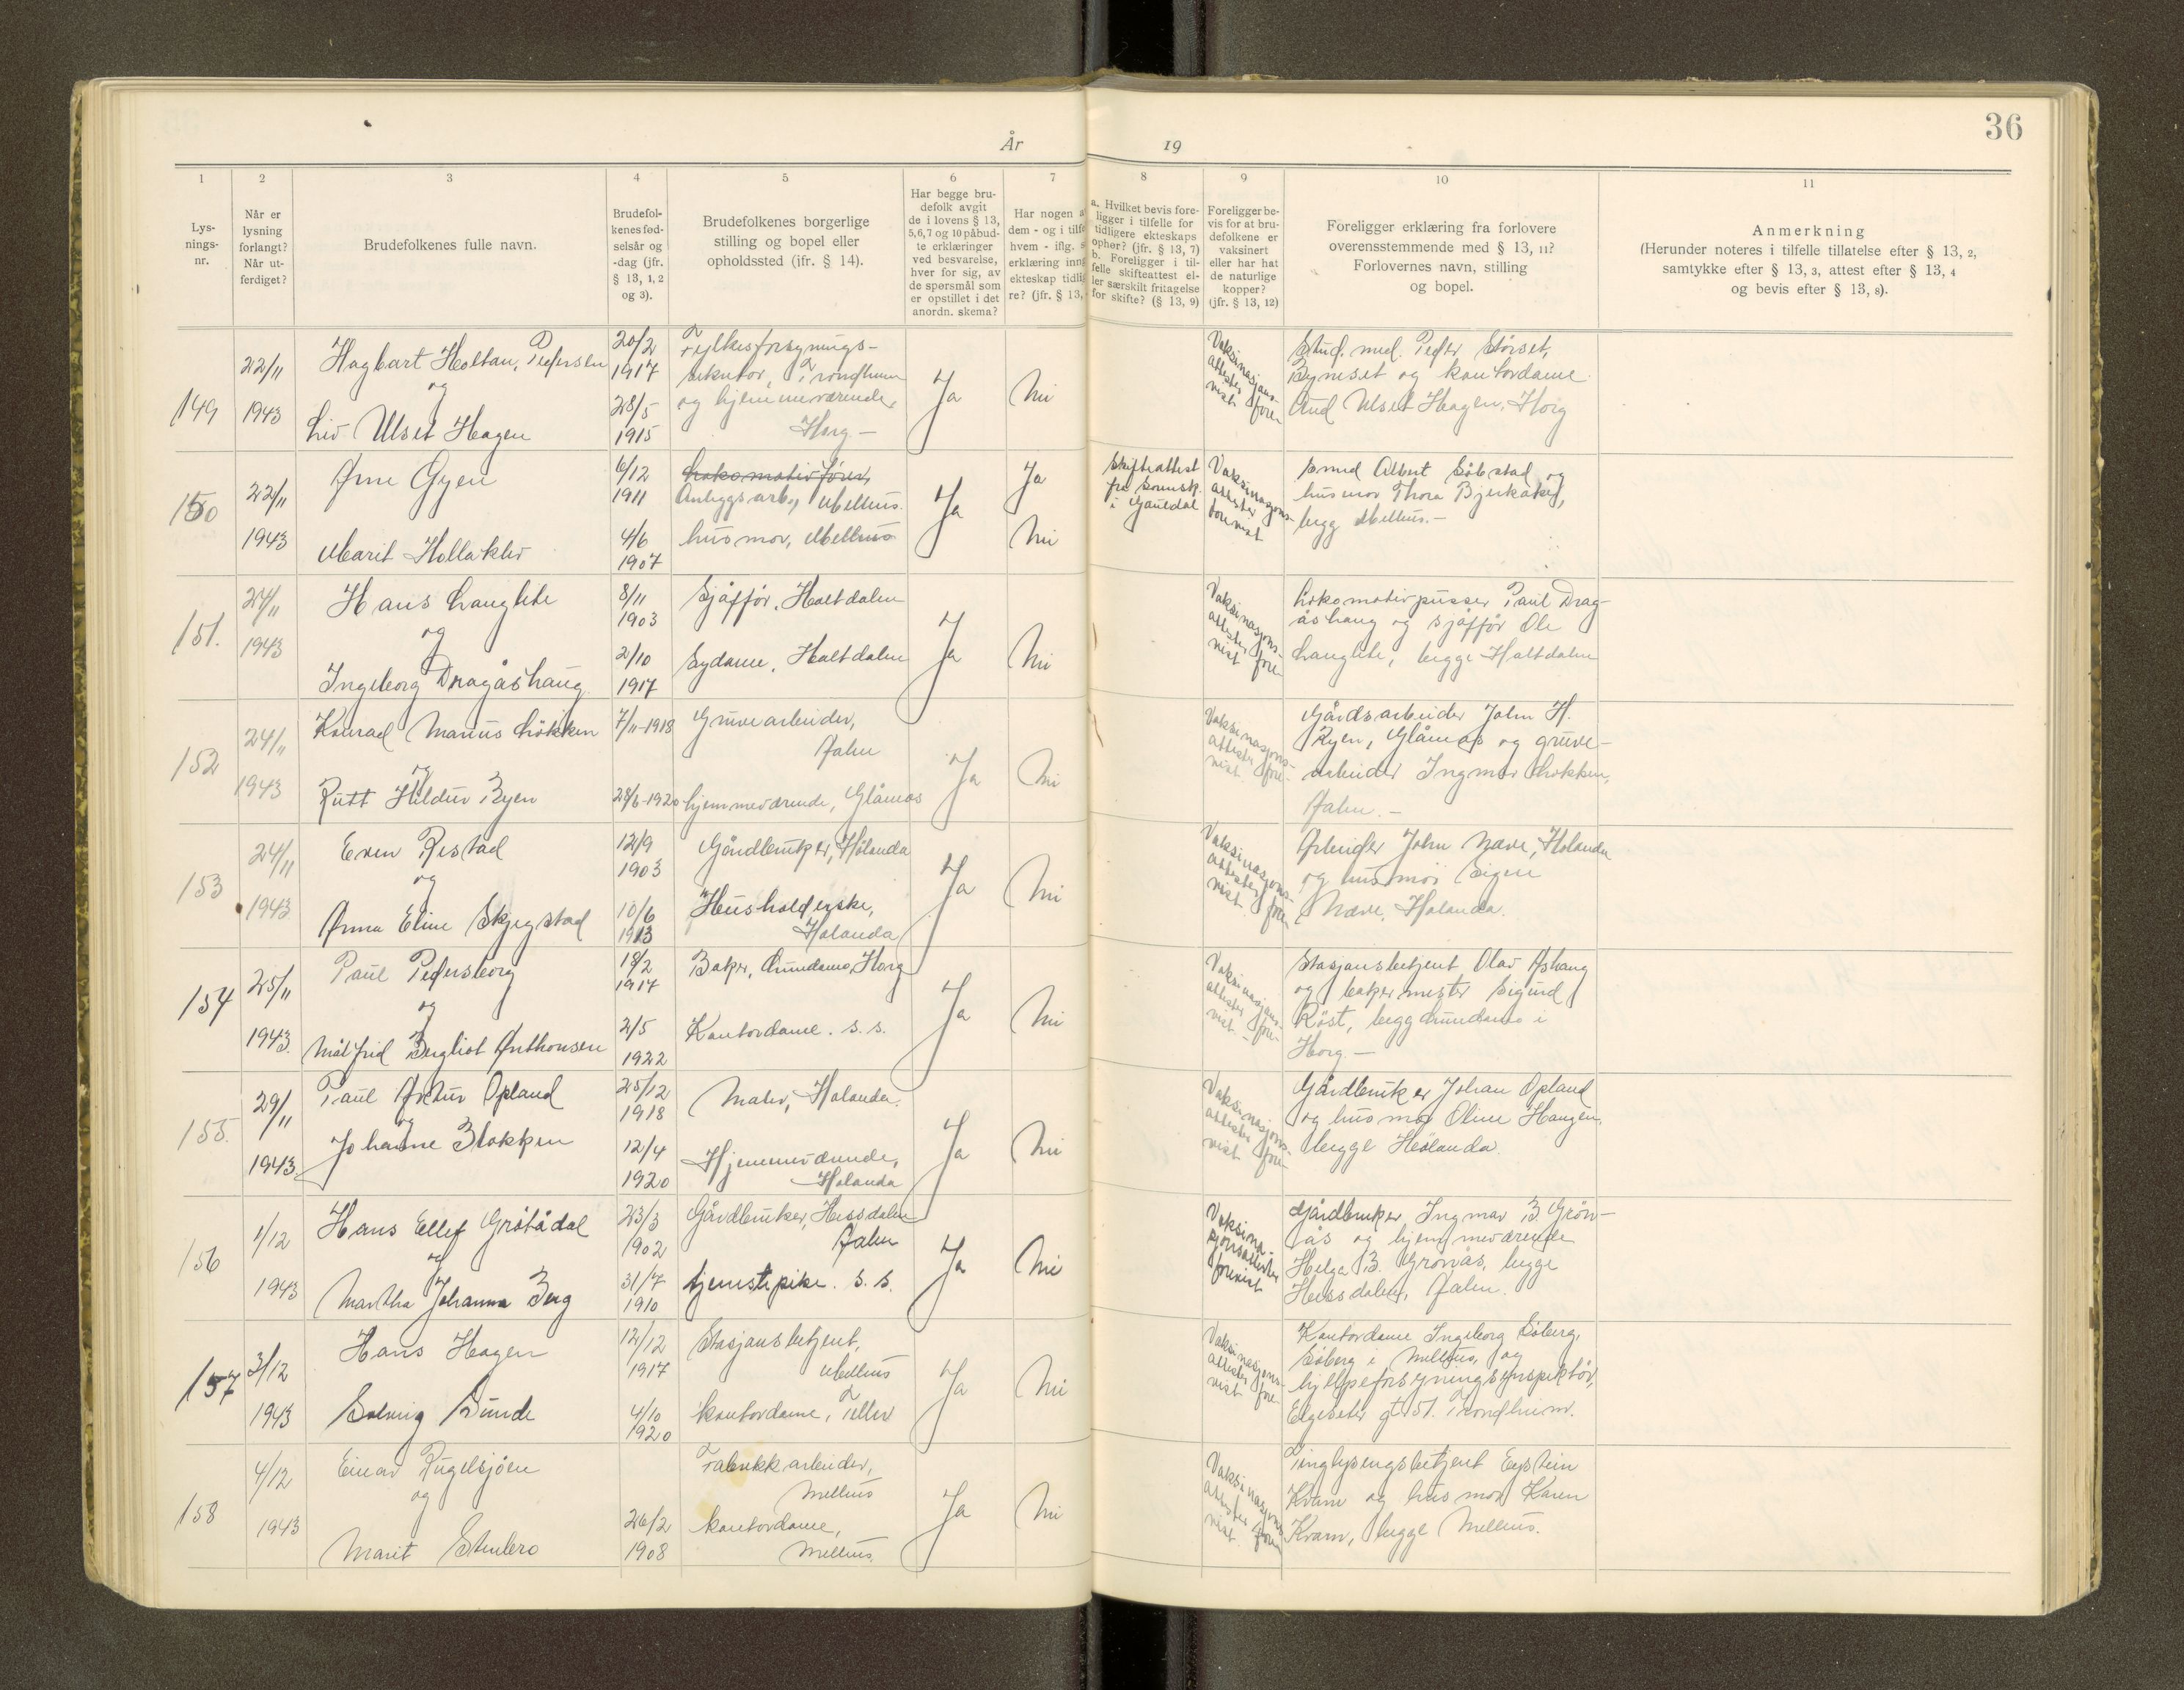 36
År
19
1
2
3
4
5
6
7
8
9
10
11
Lys-
nings-
nr.
Når er
lysning
forlangt?
Når ut-
ferdiget?
Brudefolkenes fulle navn.
Brudefol-
kenes fød-
selsår og
-dag (jfr.
§ 13, 1, 2
og 3).
Brudefolkenes borgerlige
stilling og bopel eller
opholdssted (jfr. § 14).
Har begge bru-
defolk avgit
de i lovens § 13,
5,6,7 og 10 påbud-
te erklæringer
ved besvarelse,
hver for sig, av
de spørsmål som
er opstillet i det
anordn. skema?
Har nogen a
dem - og i tilfe
hvem - iflg. s
erklæring inng
ekteskap tidlig
re? (jfr. § 13,
a. Hvilket bevis fore-
ligger i tilfelle for
tidligere ekteskaps
ophør? (jfr. § 13, 7)
b. Foreligger i til-
felle skifteattest el-
ler særskilt fritagelse
for skifte? (§ 13, 9)
Foreligger be-
vis for at bru-
defolkene er
vaksinert
eller har hat
de naturlige
kopper?
(jfr. § 13, 12)
Foreligger erklæring fra forlovere
overensstemmende med § 13, 11?
Forlovernes navn, stilling
og bopel.
Anmerkning
(Herunder noteres i tilfelle tillatelse efter § 13, 2,
samtykke efter § 13, 3, attest efter § 13, 4
og bevis efter § 13, 8).
149
22/11
1943
Hagbart Holtan, Pedersen
og
Liv Ulset Hagen
20/2
1917
28/5
1915
Fylkesforsynings-
sekretær, Trondheim
og hjemmeværende,
Horg -
Ja
Nei
Vaksinasjons-
attester fore-
vist
Stud. med. Peder Storset,
Byneset og kontordame
Aud Ulset Hagen, Horg
150
22/11
1943
Arne Gyen
Marit Hollaklev
6/12
1911
4/6
1907
Lokomotivfører,
Anleggsarb, Melhus.
husmor, Melhus
Ja
Ja
Nei
Skifteattest
fra sorensk.
i Gauldal
Vaksinasjons-
attester
forevist
Smed Albert Søbstad og
husmor Thora Bjerkaker,
begg Melhus. -
151.
24/11
1943
Hans Langlete
og
Ingeborg Dragåshaug
8/11
1903
2/10
1917
Sjåffør, Haltdalen
Sydame, Haltdalen
Ja
Nei
Vaksinasjons-
attester fore-
vist
Lokomotivpusser Paul Drag-
åshaug og sjåffør Ole
Langlete, begge Haltdalen
152
24/11
1943
Konrad Marius Løkken
og
Rutt Hildur Ryen
7/11-1918
28/6-1920
Gruvearbeider,
Ålen
hjemmeværende, Glåmos
Ja
Nei
Vaksinasjons-
attester fore-
vist.
Gårdsarbeider John H.
Ryen, Glåmos og gruve-
arbeider Ingmar Løkken,
Ålen. -
153
24/11
1943
Even Restad
og
Anna Eline Skjegstad
12/9
1903
10/6
1913
Gårdbruker, Hølanda
Husholderske,
Hølanda
Ja
Nei
Vaksinasjons-
attester fore-
vist
Arbeider John Næve, Hølanda
og husmor Signe
Næve, Hølanda.
154
25/11
1943.
Paul Pedersborg
og
Målfrid Bergliot Anthonsen
18/2
1917
2/5
1922
Baker, Lundamo, Horg
Kontordame. s.s.
Ja
Nei
Vaksinasjons-
attester fore-
vist -
Stasjonsbetjent Olav Åshaug
og bakermester Sigurd
Røst, begg Lundamo i
Horg. -
155.
29/11
1943
Paul Artur Opland
og
Johanne Blokken
25/12
1918
12/4
1920
Maler, Hølanda.
Hjemmeværende,
Hølanda
Ja
Nei
Vaksinasjons-
attester fore-
vist
Gårdbruker Johan Opland
og husmor Oline Haugen,
begge Hølanda.
156
1/12
1943
Hans Ellef Grøtådal
og
Martha Johanna Berg
23/3
1902
31/7
1910
Gårdbruker, Hessdalen
Ålen
tjenstepike. s.s.
Ja
Nei
Vaksina-
sjonsattester
forevist
Gårdbruker Ingmar B. Grøn-
ås og hjemmeværende
Helga B. Grønås, begge
Hessdalen, Ålen.
157
3/12
1943
Hans Hagen
Solveig Sunde
12/12
1917
4/10
1920
Stasjonsbetjent,
Melhus
kontordame, Tiller
Ja
Nei
Vaksinasjons-
attester fore-
vist
Kontordame Ingeborg Søberg,
Søberg i Melhus, og
hjelpeforsyningsinspektør,
Elgeseter gt. 51. Trondheim.
158
4/12
1943
Einar Rugelsjøen
og
Marit Stenbro
26/2
1908
Fabrikkarbeider,
Melhus
kontordame,
Melhus.
Ja
Nei
Vaksinasjons-
attester fore-
vist
Tinglysingsbetjent Eystein
Kvam og husmor Karen
Kvam, begge Melhus.